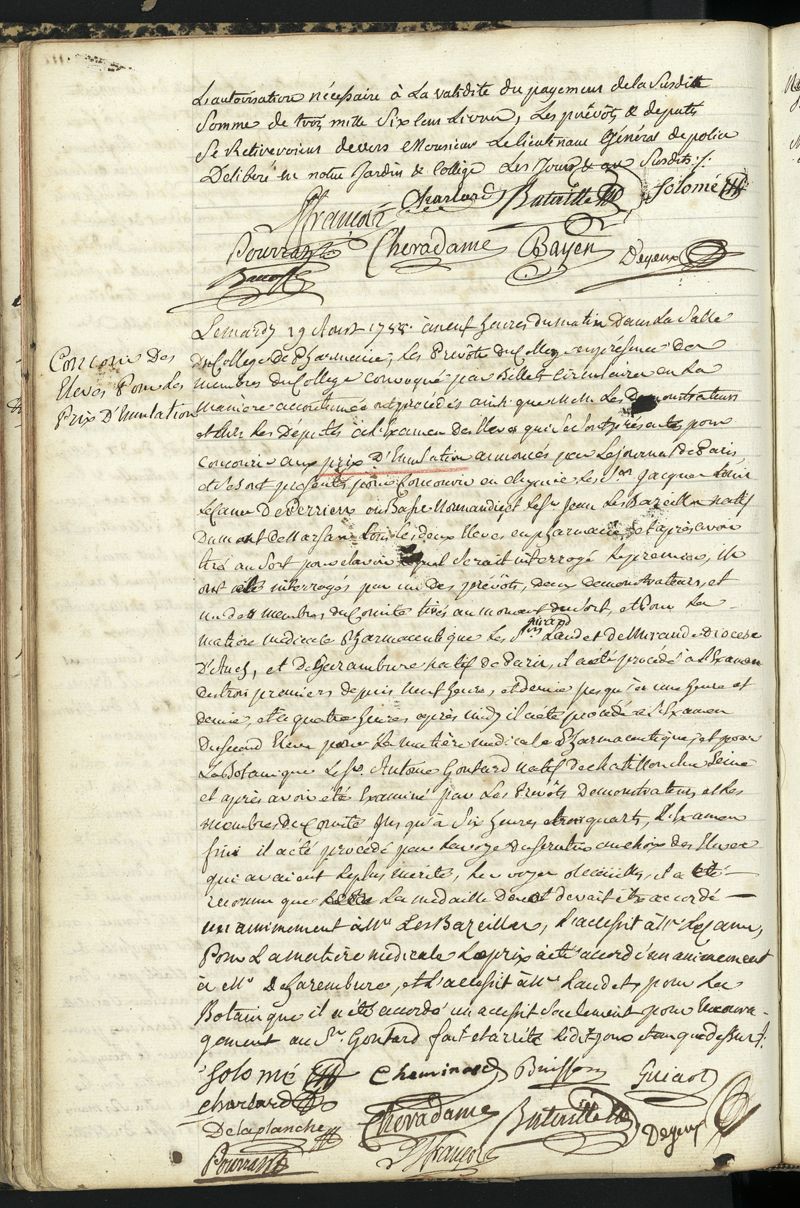 L'autorisation nécessaire à La validité du payement de la Susditte
Somme de trois mille Six cens Livres, Les prévôts & députés
Se Retireroient devers Monsieur Le lieutenant Général de police
Délibéré en notre Jardin & Collège Les Jour & an Susdits ./.
Charlard Bataille Solomé
f françois
Pourrat Cheradame Bayen Deyeux
Concours Des
Eleves Pour Les
Prix D'Emulation
Le mardy 19 Aoust 1788. à neuf heures du matin Dans La Salle
du College De Pharmacie, les Prévôts du College en présence des
membres du College convoqué par Billets Circulaires en La
manière accoutumée ont procédés ainsi que MM. Les Demonstrateurs
et les Députés à l'Examen des Eleves qui se sont présentés pour
concourir aux prix D'Emulation annoncés par Le journal de Paris,
et se sont présentés pour Concourir en chymie Les Srs. Jacques Louis
Le Canu De Perriers en Basse Normandie, et Le Sr. Jean Les Bazeilles natif
Du mont de Marsan tous les deux Eleves en pharmacie, et après avoir
tiré au Sort pour savoir lequel Seroit interrogé le premier, ils
ont été interrogés par un des prévôts, deux demonstrateurs, et
un des membres du Comité tirés au moment du Sort, et Pour La
matière médicale Pharmaceutique les Srs Laudet De Mirande Diocese
D'Auch, et De Garembure natif de Paris, il a été procédé à l'Examen
des trois premiers depuis neuf heures et demie jusqu'à une heure et
demie, et à quatre heures après midy il a été procédé à l'Examen
Du Second Eleve pour La matière médicale Pharmaceutique, et pour
La Botanique Le Sr. Antoine Goutard natif de chatillon sur Seine
et après avoir été Examiné par Les Prévôts Demonstrateurs et les
membres du Comité Jusqu'à Six heures et trois quarts, L'Examen
fini il a été procédé par la voye du Scrutin au choix des Eleves
qui avaient le plus mérité, Les voyes recueillies, il a été
reconnu que La médaille devait être accordé
unanimement à Mr. Les Bazeilles, L'accessit à Mr. Le Canu,
Pour La matière médicale Le prix a été accordé unanimement
à Mr. De Garembure, et L'accessit à Mr. Laudet, pour La
Botanique il n'a été accordé un accessit Seulement pour Encoura-
gement au Sr. Goutard fait et arrêté Les dits jour et an que dessus ./.
Solomé Cheminard Buisson Guiart
Charlard Cheradame Bataille
Delaplanche Deyeux
Pourrat f françois